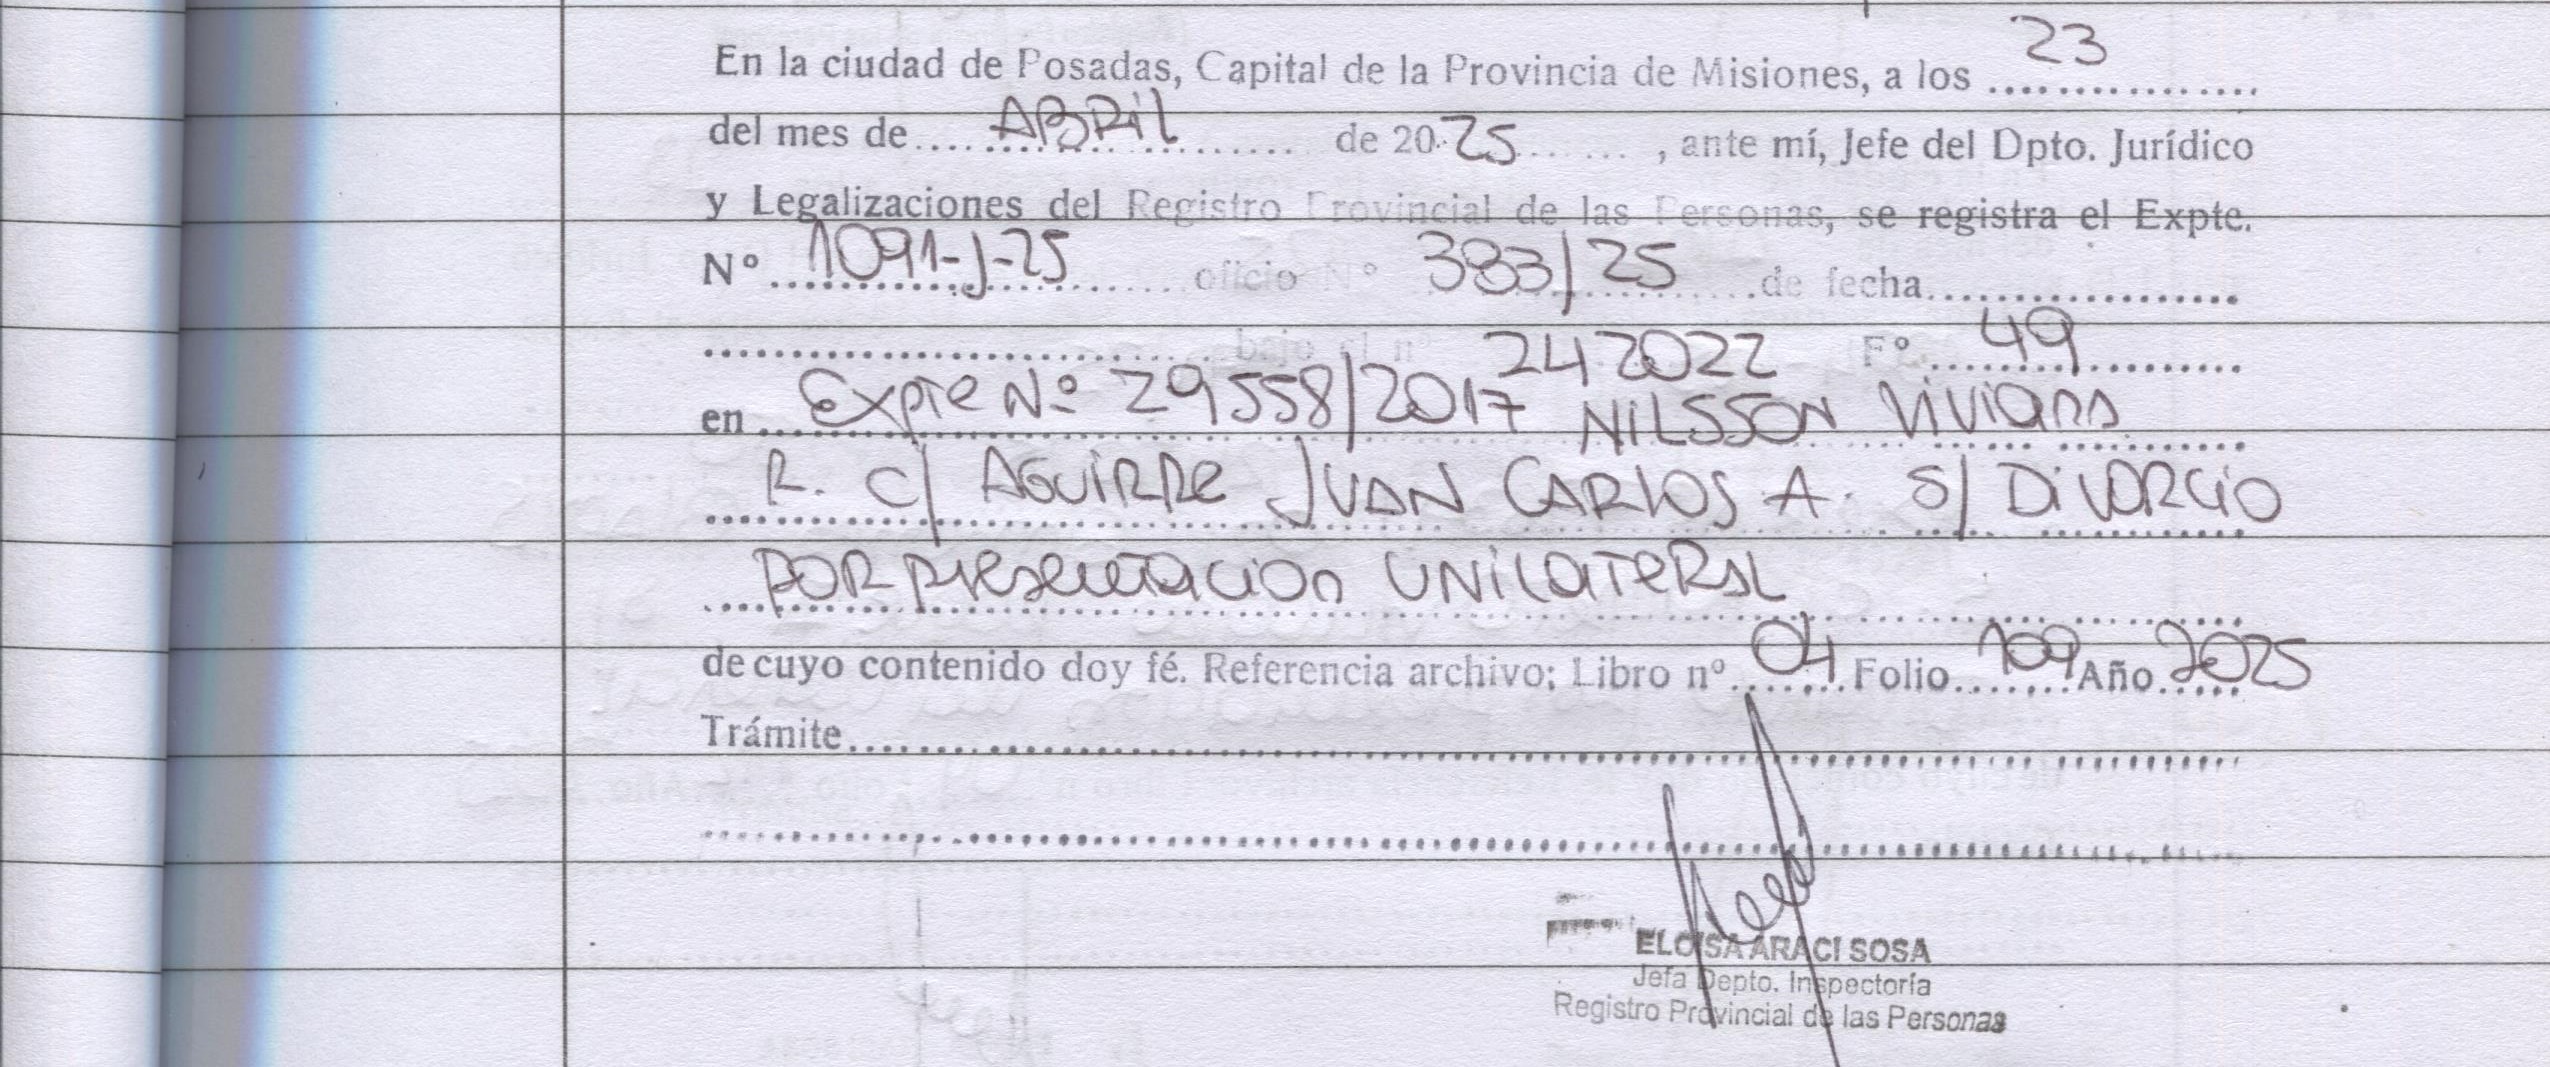 En la ciudad de Posadas, Capital de la Provincia de Misiones, a los 23
del mes de ABRil de 2025, ante mí, Jefe del Dpto. Jurídico
y Legalizaciones del Registro Provincial de las Personas, se registra el Expte.
Nº 1091-J-25 oficio Nº 383/25 de fecha
bajo el nº 242022 Fº 49
en Expte Nº 29558/2017 NILSSON Viviana
R. C/ AGUIRRE JUAN CARLOS A. S/ DIVORCIO
POR presentacion UNILATERAL
de cuyo contenido doy fé. Referencia archivo: Libro nº 04 Folio 109 Año 2025
Trámite
ELOISA ARACI SOSA
Jefa Depto. Inspectoría
Registro Provincial de las Personas